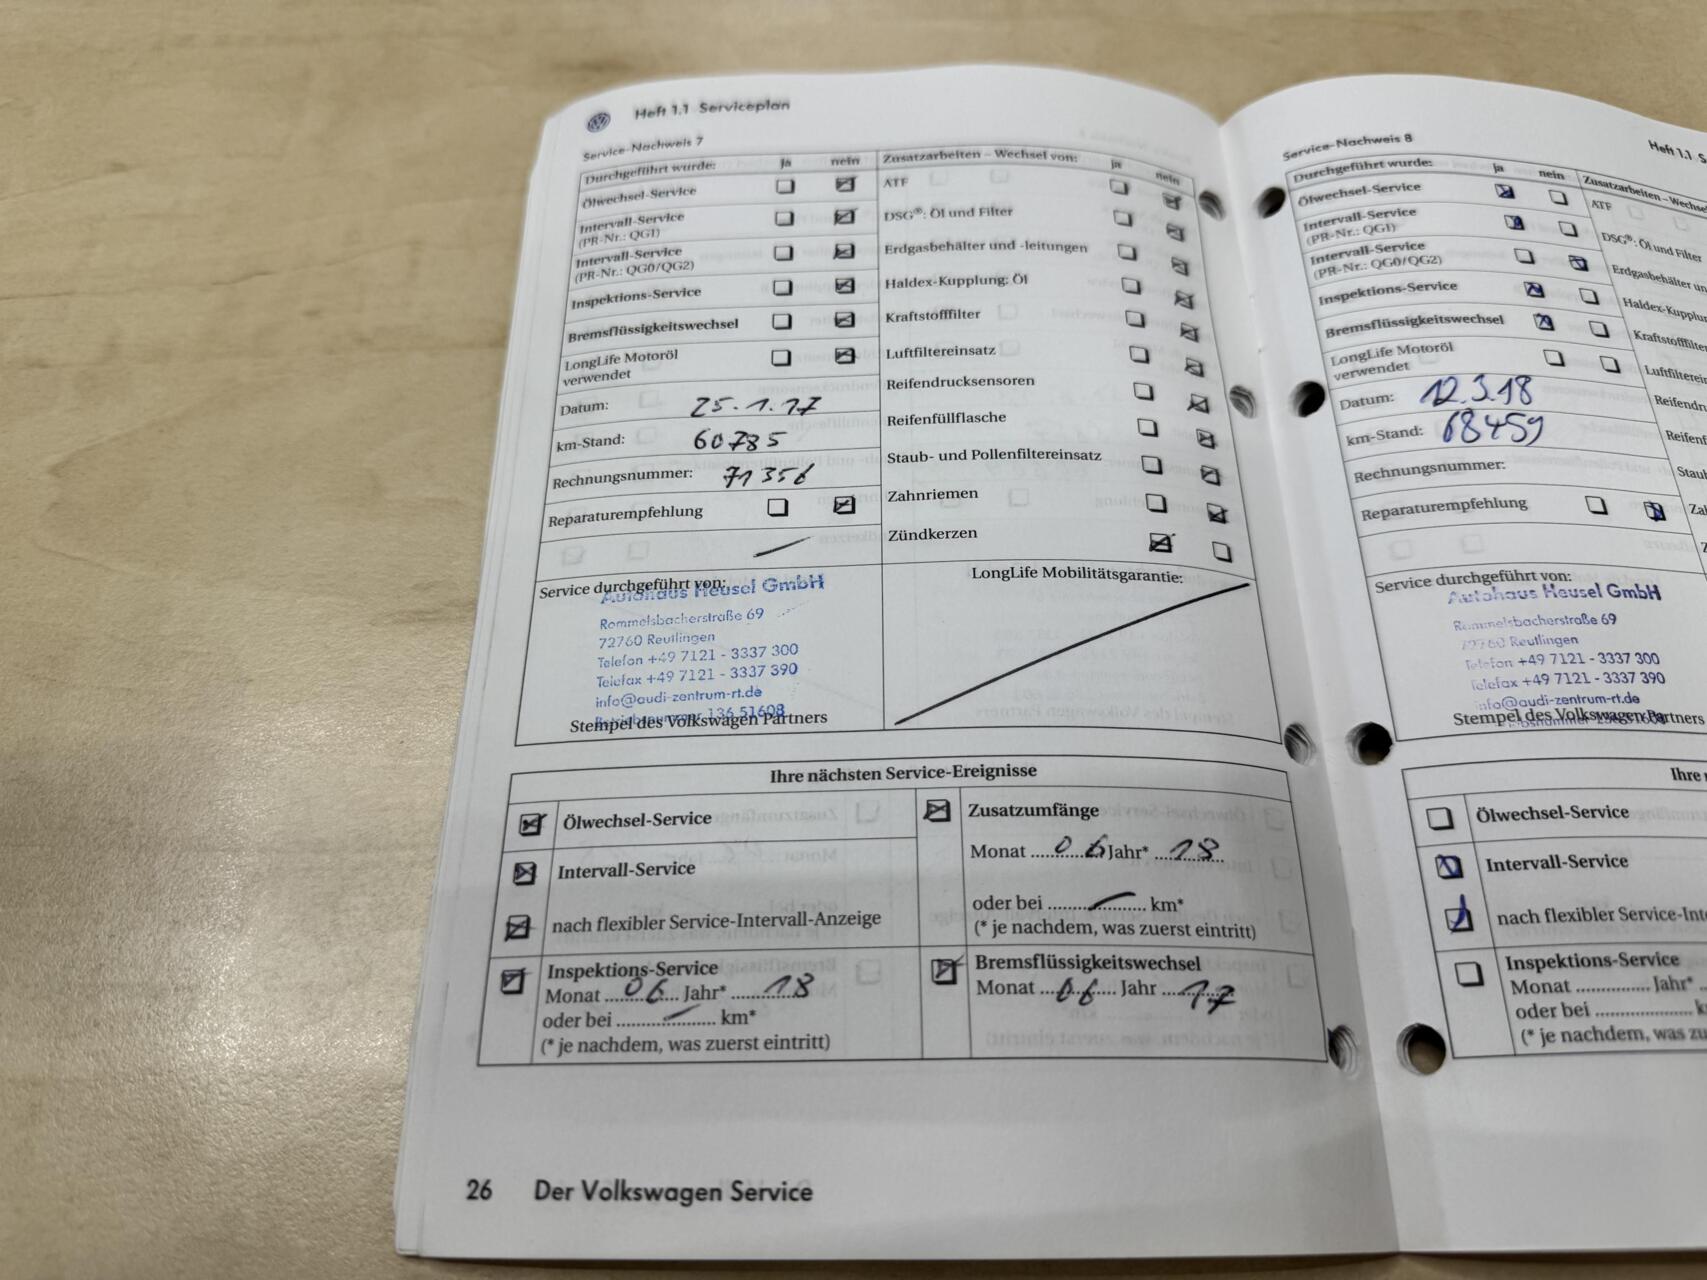 Heft 1.1 Serviceplan
Service-Nachweis 7
Durchgeführt wurde: ja nein
Ölwechsel-Service
Intervall-Service
(PR-Nr.: QG1)
Intervall-Service
(PR-Nr.: QG0/QG2)
Inspektions-Service
Bremsflüssigkeitswechsel
LongLife Motoröl
verwendet
Datum: 25.1.17
km-Stand: 60785
Rechnungsnummer: 71356
Reparaturempfehlung
Zusatzarbeiten – Wechsel von: ja nein
ATF
DSG®: Öl und Filter
Erdgasbehälter und -leitungen
Haldex-Kupplung: Öl
Kraftstofffilter
Luftfiltereinsatz
Reifendrucksensoren
Reifenfüllflasche
Staub- und Pollenfiltereinsatz
Zahnriemen
Zündkerzen
Service durchgeführt von:
Autohaus Heusel GmbH
Rommelsbacherstraße 69
72760 Reutlingen
Telefon +49 7121 - 3337 300
Telefax +49 7121 - 3337 390
info@audi-zentrum-rt.de
Betriebsnummer 136 51608
Stempel des Volkswagen Partners
LongLife Mobilitätsgarantie:
Ihre nächsten Service-Ereignisse
Ölwechsel-Service
Intervall-Service
nach flexibler Service-Intervall-Anzeige
Inspektions-Service
Monat 06 Jahr* 18
oder bei .......... km*
(* je nachdem, was zuerst eintritt)
Zusatzumfänge
Monat 06 Jahr* 18
oder bei .......... km*
(* je nachdem, was zuerst eintritt)
Bremsflüssigkeitswechsel
Monat 06 Jahr 17
26 Der Volkswagen Service
Heft 1.1
Service-Nachweis 8
Durchgeführt wurde: ja nein
Ölwechsel-Service
Intervall-Service
(PR-Nr.: QG1)
Intervall-Service
(PR-Nr.: QG0/QG2)
Inspektions-Service
Bremsflüssigkeitswechsel
LongLife Motoröl
verwendet
Datum: 12.3.18
km-Stand: 68459
Rechnungsnummer:
Reparaturempfehlung
Zusatzarbeiten – Wechse
ATF
DSG®: Öl und Filter
Erdgasbehälter un
Haldex-Kupplun
Kraftstofffilter
Luftfilterein
Reifendr
Reifenf
Staub
Za
Service durchgeführt von:
Autohaus Heusel GmbH
Rommelsbacherstraße 69
72760 Reutlingen
Telefon +49 7121 - 3337 300
Telefax +49 7121 - 3337 390
info@audi-zentrum-rt.de
Stempel des Volkswagen Partners
Ihre
Ölwechsel-Service
Intervall-Service
nach flexibler Service-Inte
Inspektions-Service
Monat .......... Jahr*
oder bei ..........
(* je nachdem, was zu